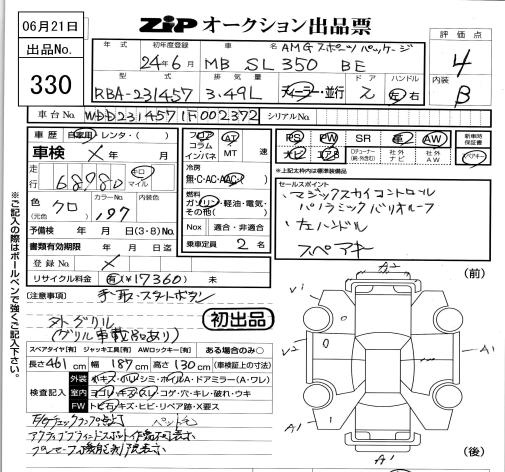 06月21日
ZIP オークション出品票
出品No.
330
年式
初年度登録
車名
AMG スポーツパッケージ
評価点
24年6月
MB SL350 BE
4
型式
排気量
ドア
ハンドル
内装
RBA-231457
3.49L
ディーラー・並行
2
左 右
B
車台No.
WDD231457 1F002372
シリアルNo.
車歴
自家用・レンタ・( )
フロア
コラム
インパネ
AT
MT
速
PS
PW
SR
革
AW
新車時保証書
車検
×年 月
ナビ
エアB
社外ナビ
社外AW
スペアキー
走行
68980
キロ
マイル
冷房
無・C・AC・AAC
※上記太枠は標準装備品
色
(元色)
クロ
カラーNo.
197
内装色
燃料
ガソリン・軽油・電気・
その他( )
セールスポイント
、マジックスカイコントロール
パノラミックバリオルーフ
、左ハンドル
スペアキ
予備検 年 月 日(3・8)No.
Nox
適合・非適合
書類有効期限 年 月 日迄
乗車定員 2 名
登録No.
×
リサイクル料金 有(¥17360)未
(前)
[注意事項]
手、取・スタートボタン
外グリル
(グリル車載品あり)
初出品
スペアタイヤ[有] ジャッキ工具[有] AWロックキー[有] ある場合のみ○
長さ461cm 幅187cm 高さ130cm (車検証上の寸法)
検査記入
外装
小キズ・小ヘコミ・ホイルA・ドアミラー(A・ワレ)
室内
ヨゴレ・キズ・スレ・コゲ・穴・キレ・破れ・ウキ
FW
トビ石・キズ・ヒビ・リペア跡・X要ス
E/gチェックランプ点灯
ペット毛
アクティブブラインドスポット作動不可表示
プレセーフ機能制限表示
※ご記入の際はボールペンで強くご記入下さい。
A2
V2
A1
A1
(後)